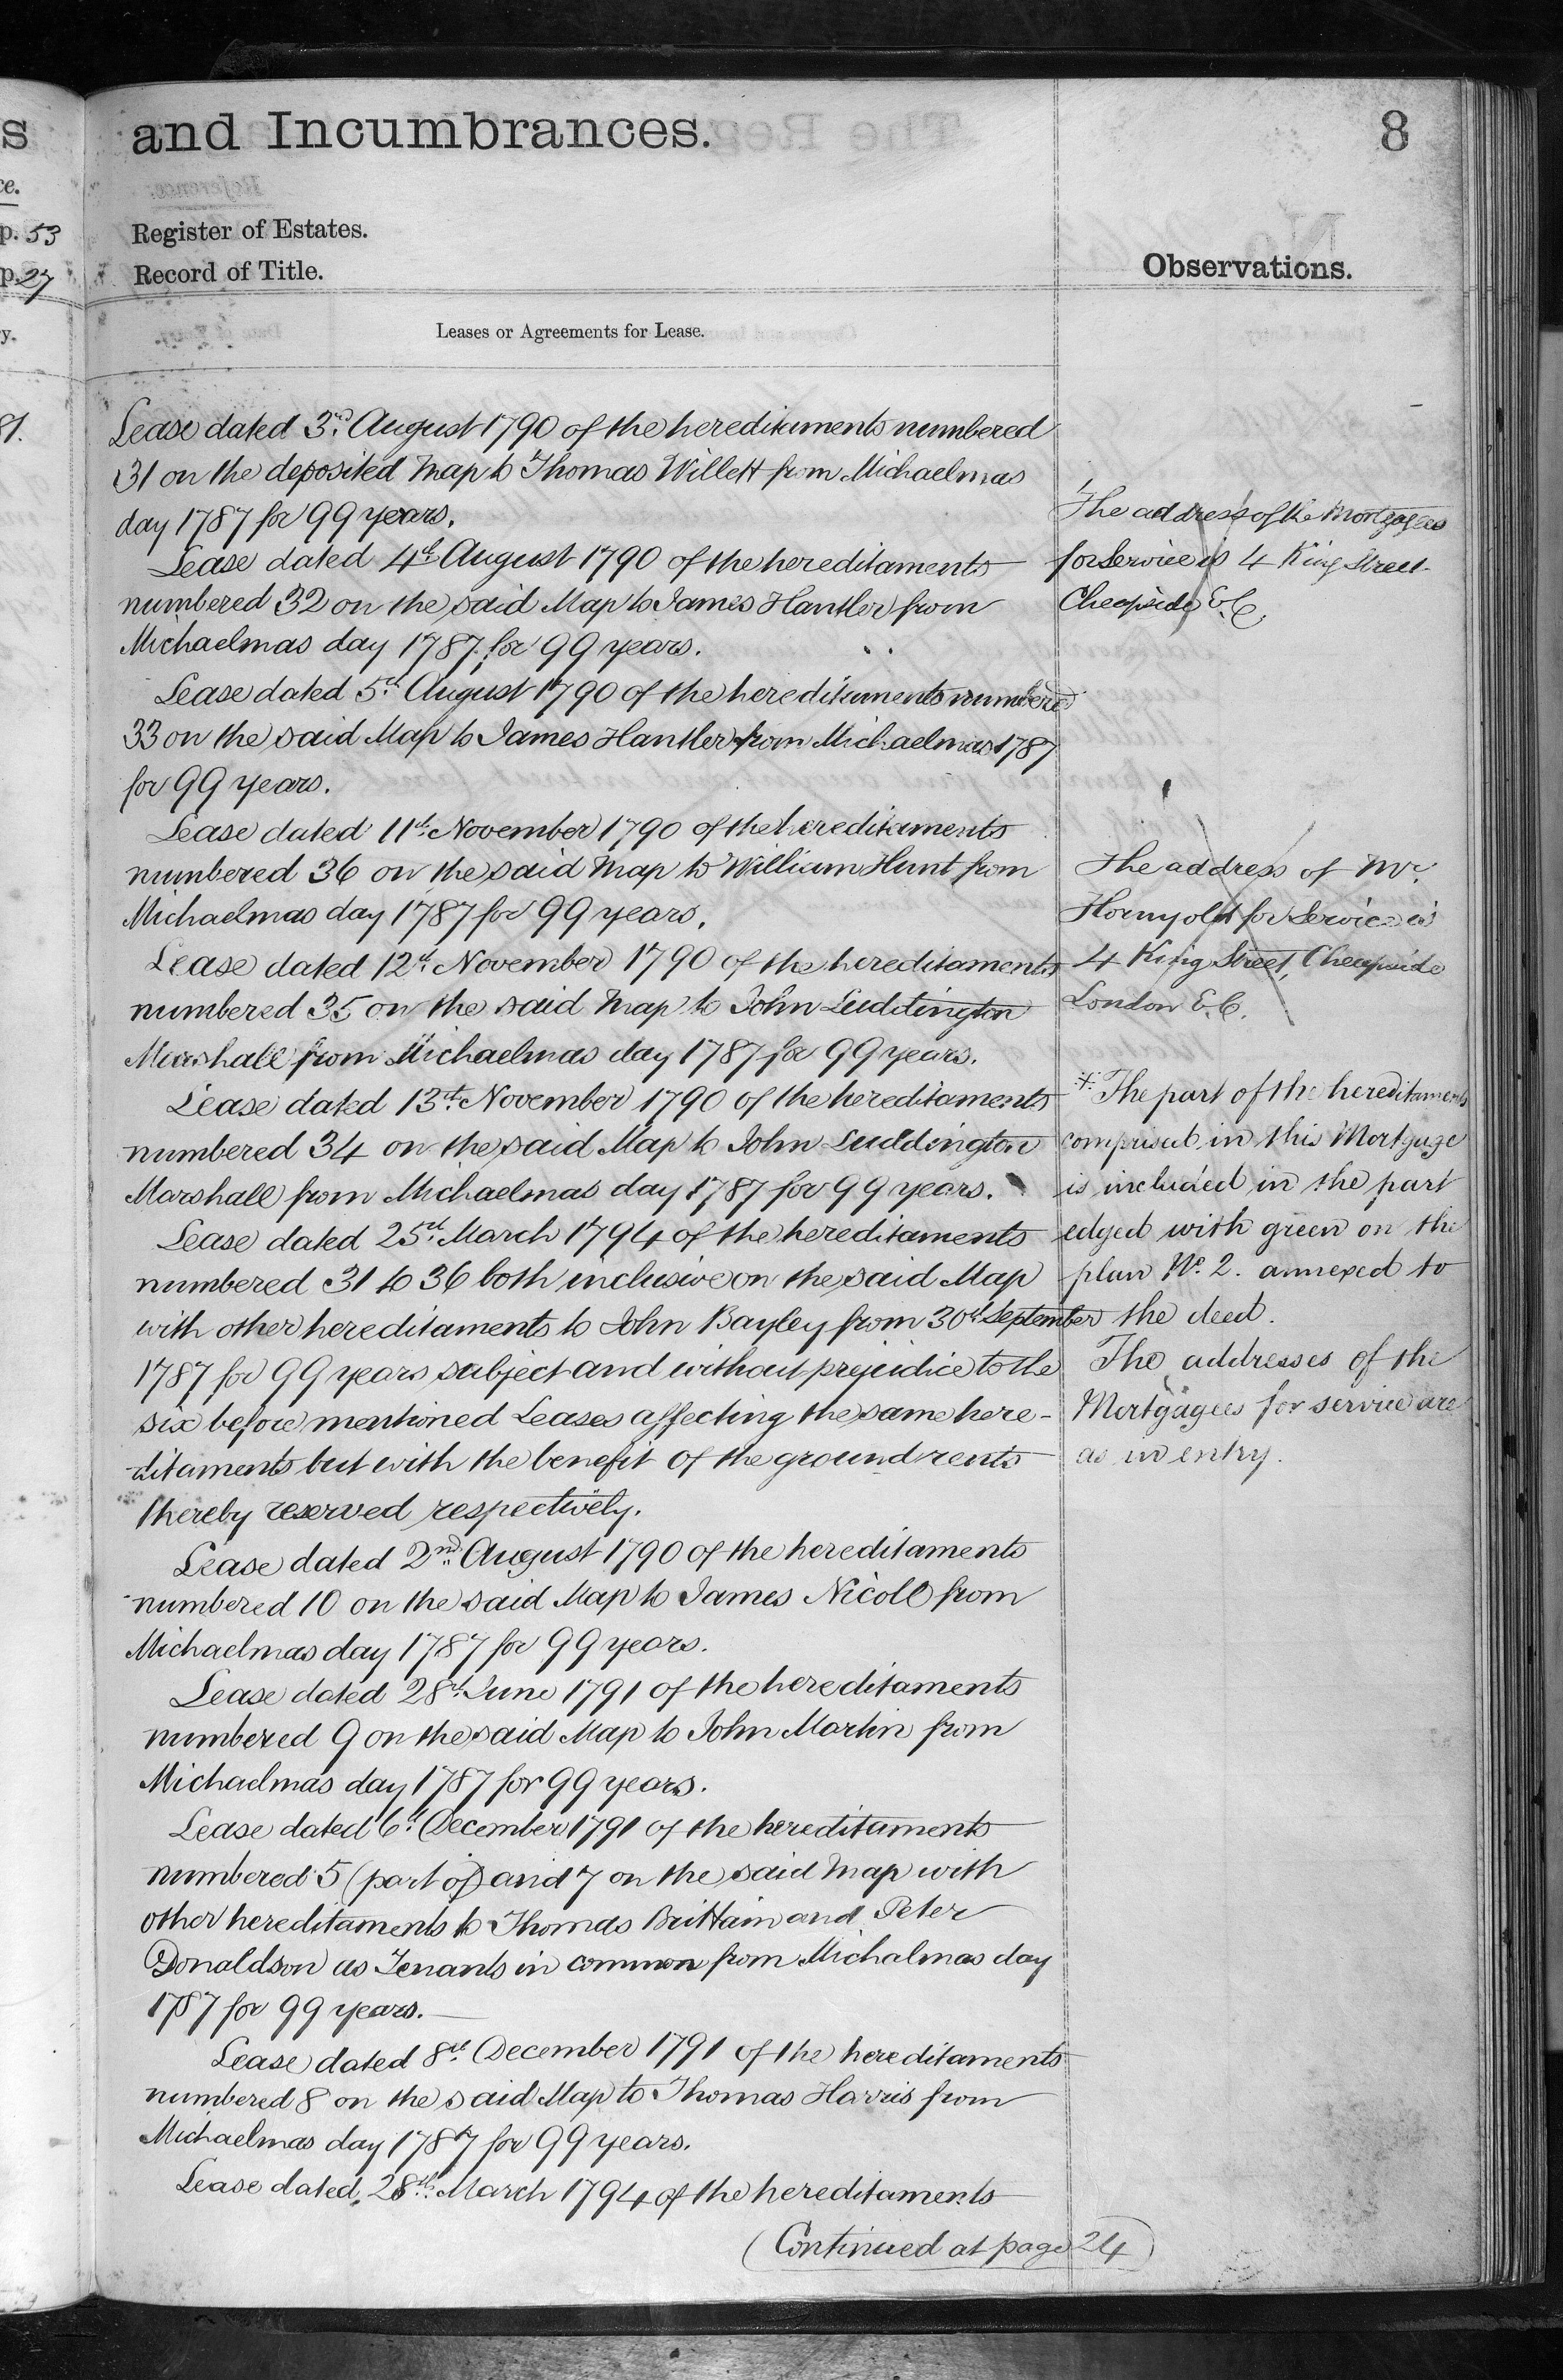 and Incumbrances.
8
s
ce.
p. 53
p. 27
y.
81.
Register of Estates.
Record of Title.
Observations.
Leases or Agreements for Lease.
Lease dated 3rd August 1790 of the hereditaments numbered
31 on the deposited Map to Thomas Willett from Michaelmas
day 1787 for 99 years.
Lease dated 4th August 1790 of the hereditaments
numbered 32 on the said Map to James Hantler from
Michaelmas day 1787 for 99 years.
Lease dated 5th August 1790 of the hereditaments numbered
33 on the said Map to James Hantler from Michaelmas 1787
for 99 years.
Lease dated 11th November 1790 of the hereditaments
numbered 36 on the said Map to William Hunt from
Michaelmas day 1787 for 99 years.
Lease dated 12th November 1790 of the hereditaments
numbered 35 on the said Map to John Luddington
Marshall from Michaelmas day 1787 for 99 years.
Lease dated 13th November 1790 of the hereditaments
numbered 34 on the said Map to John Luddington
Marshall from Michaelmas day 1787 for 99 years.
Lease dated 25th March 1794 of the hereditaments
numbered 31 to 36 both inclusive on the said Map
with other hereditaments to John Bayley from 30th September
1787 for 99 years subject and without prejudice to the
six before mentioned Leases affecting the same here-
-ditaments but with the benefit of the ground rents
thereby reserved respectively.
Lease dated 2nd August 1790 of the hereditaments
numbered 10 on the said Map to James Nicoll from
Michaelmas day 1787 for 99 years.
Lease dated 28th June 1791 of the hereditaments
numbered 9 on the said Map to John Martin from
Michaelmas day 1787 for 99 years.
Lease dated 6th December 1791 of the hereditaments
numbered 5 (part of) and 7 on the said Map with
other hereditaments to Thomas Brittain and Peter
Donaldson as Tenants in common from Michalmas day
1787 for 99 years.
Lease dated 8th December 1791 of the hereditaments
numbered 8 on the said Map to Thomas Harris from
Michaelmas day 1787 for 99 years.
Lease dated 28th March 1794 of the hereditaments
(Continued at page 24)
The address of the Mortgagees
for Service is 4 King Street
Cheapside E.C.
The address of Mr.
Hornyold for Service is
4 King Street, Cheapside
London E.C.
* The part of the hereditaments
comprised in this Mortgage
is included in the part
edged with green on the
plan No. 2. annexed to
the deed.
The addresses of the
Mortgagees for service are
as in entry.